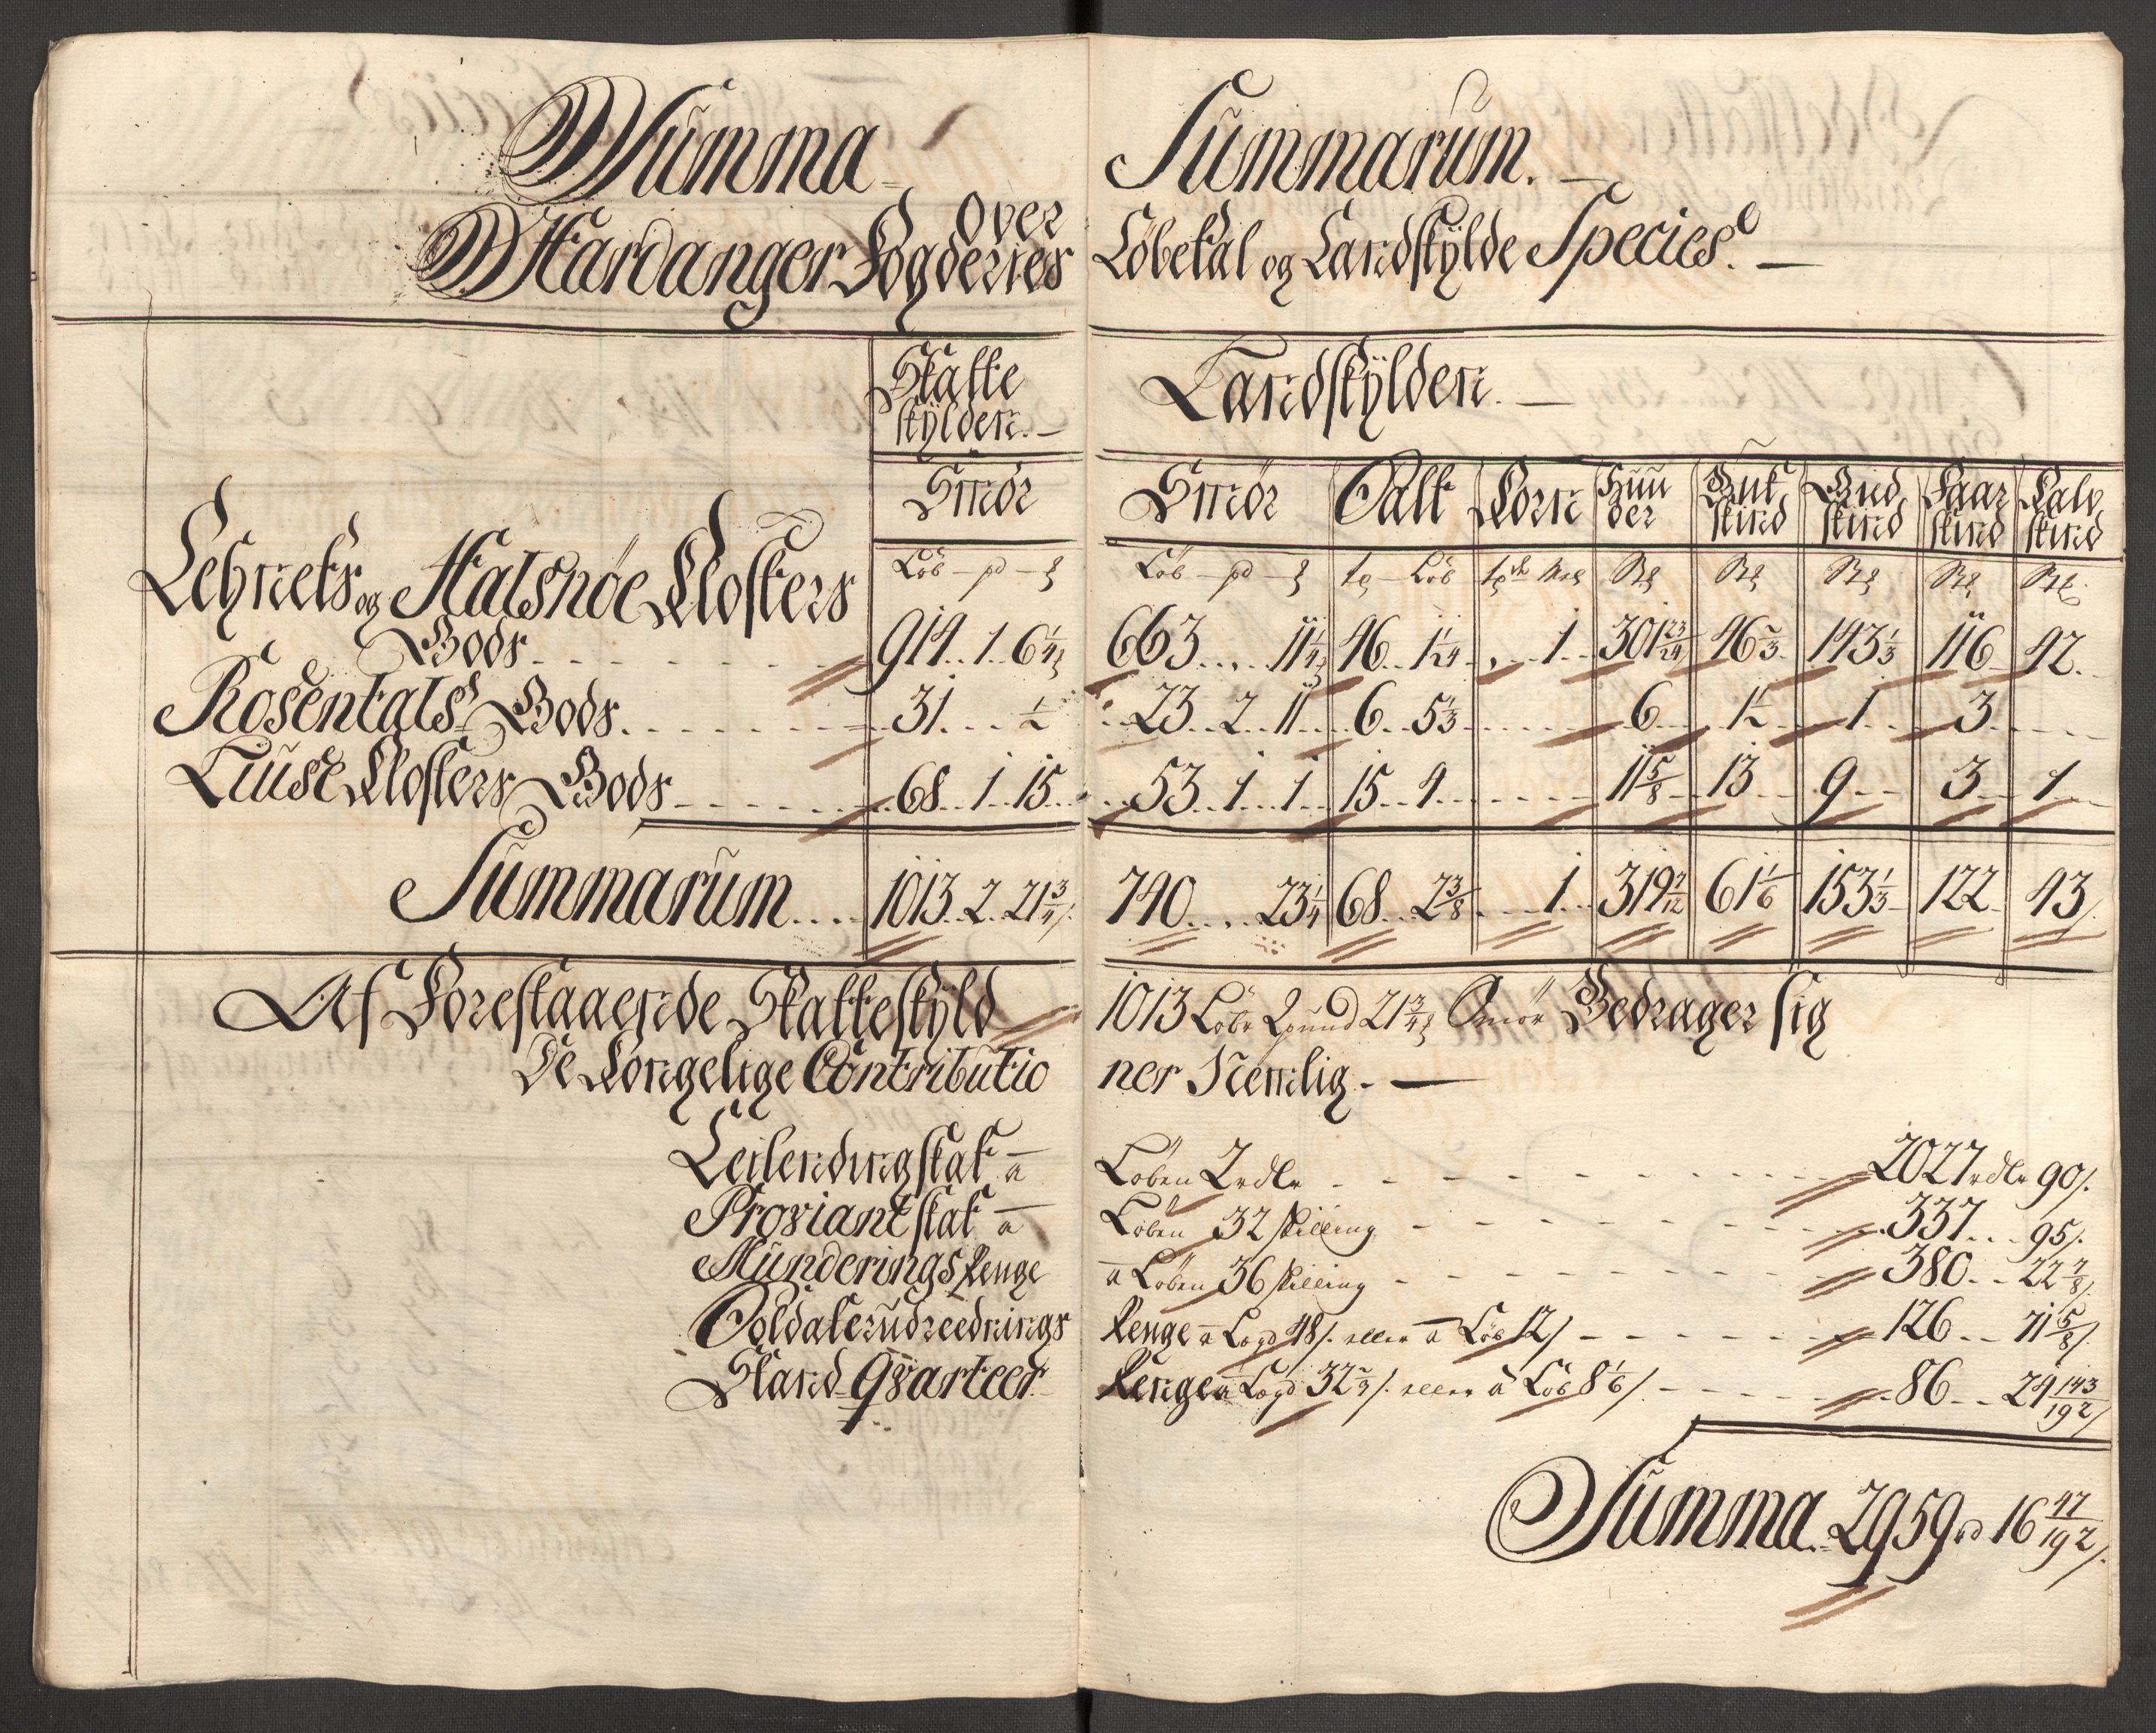 Summa Summarum.
over
Hardanger Fogderies Løbetal og Landskÿlde Species.
Skatte Landskÿlden.
skÿlden.
Smör Smör Salt Korn Huu Buk Gied Faar Kalv
der skind skind skind skind
Lehnets og Halsnöe Klosters Löb - pd - Löb - pd - Löb
Gods 914..1..6 1/4 663....11 1/4 46..1 1/24 1 301 23/24 46 2/3 143 1/3 116 42.
Rosentals Gods 31....1/2 23..2..11 6..5 1/3 6 1 1/2 1 3
Liuse Klosters Gods 68..1..15 53..1..1 15..4 11 5/8 13 9 3 1
Summarum 1013..2..21 3/4 740....23 1/4 68..2 3/8 1 319 7/12 61 1/6 153 1/3 122 43
Af Forestaaende Skatteskÿld 1013 Löbe 2 pund 21 3/4 Smör Bedrager sig
De Kongelige Contributio ner Nemlig.
Leilendingskat a Löben 2 rdlr 2027 rdlr 90/.
Proviant skat a Löben 32 skilling 337... 95/.
Munderings Penge a Löben 36 skilling 380.. 22 7/8/.
Soldaterudreednings Penge a Lægd 48/. eller a Löb 12/ 126.. 71 5/8/.
Stand Qvarteer Penge a Lægd 32 2/3/. eller a Löb 8 1/6/ 86.. 24 143/192/
Summa 2959 rd 16 47/192/.